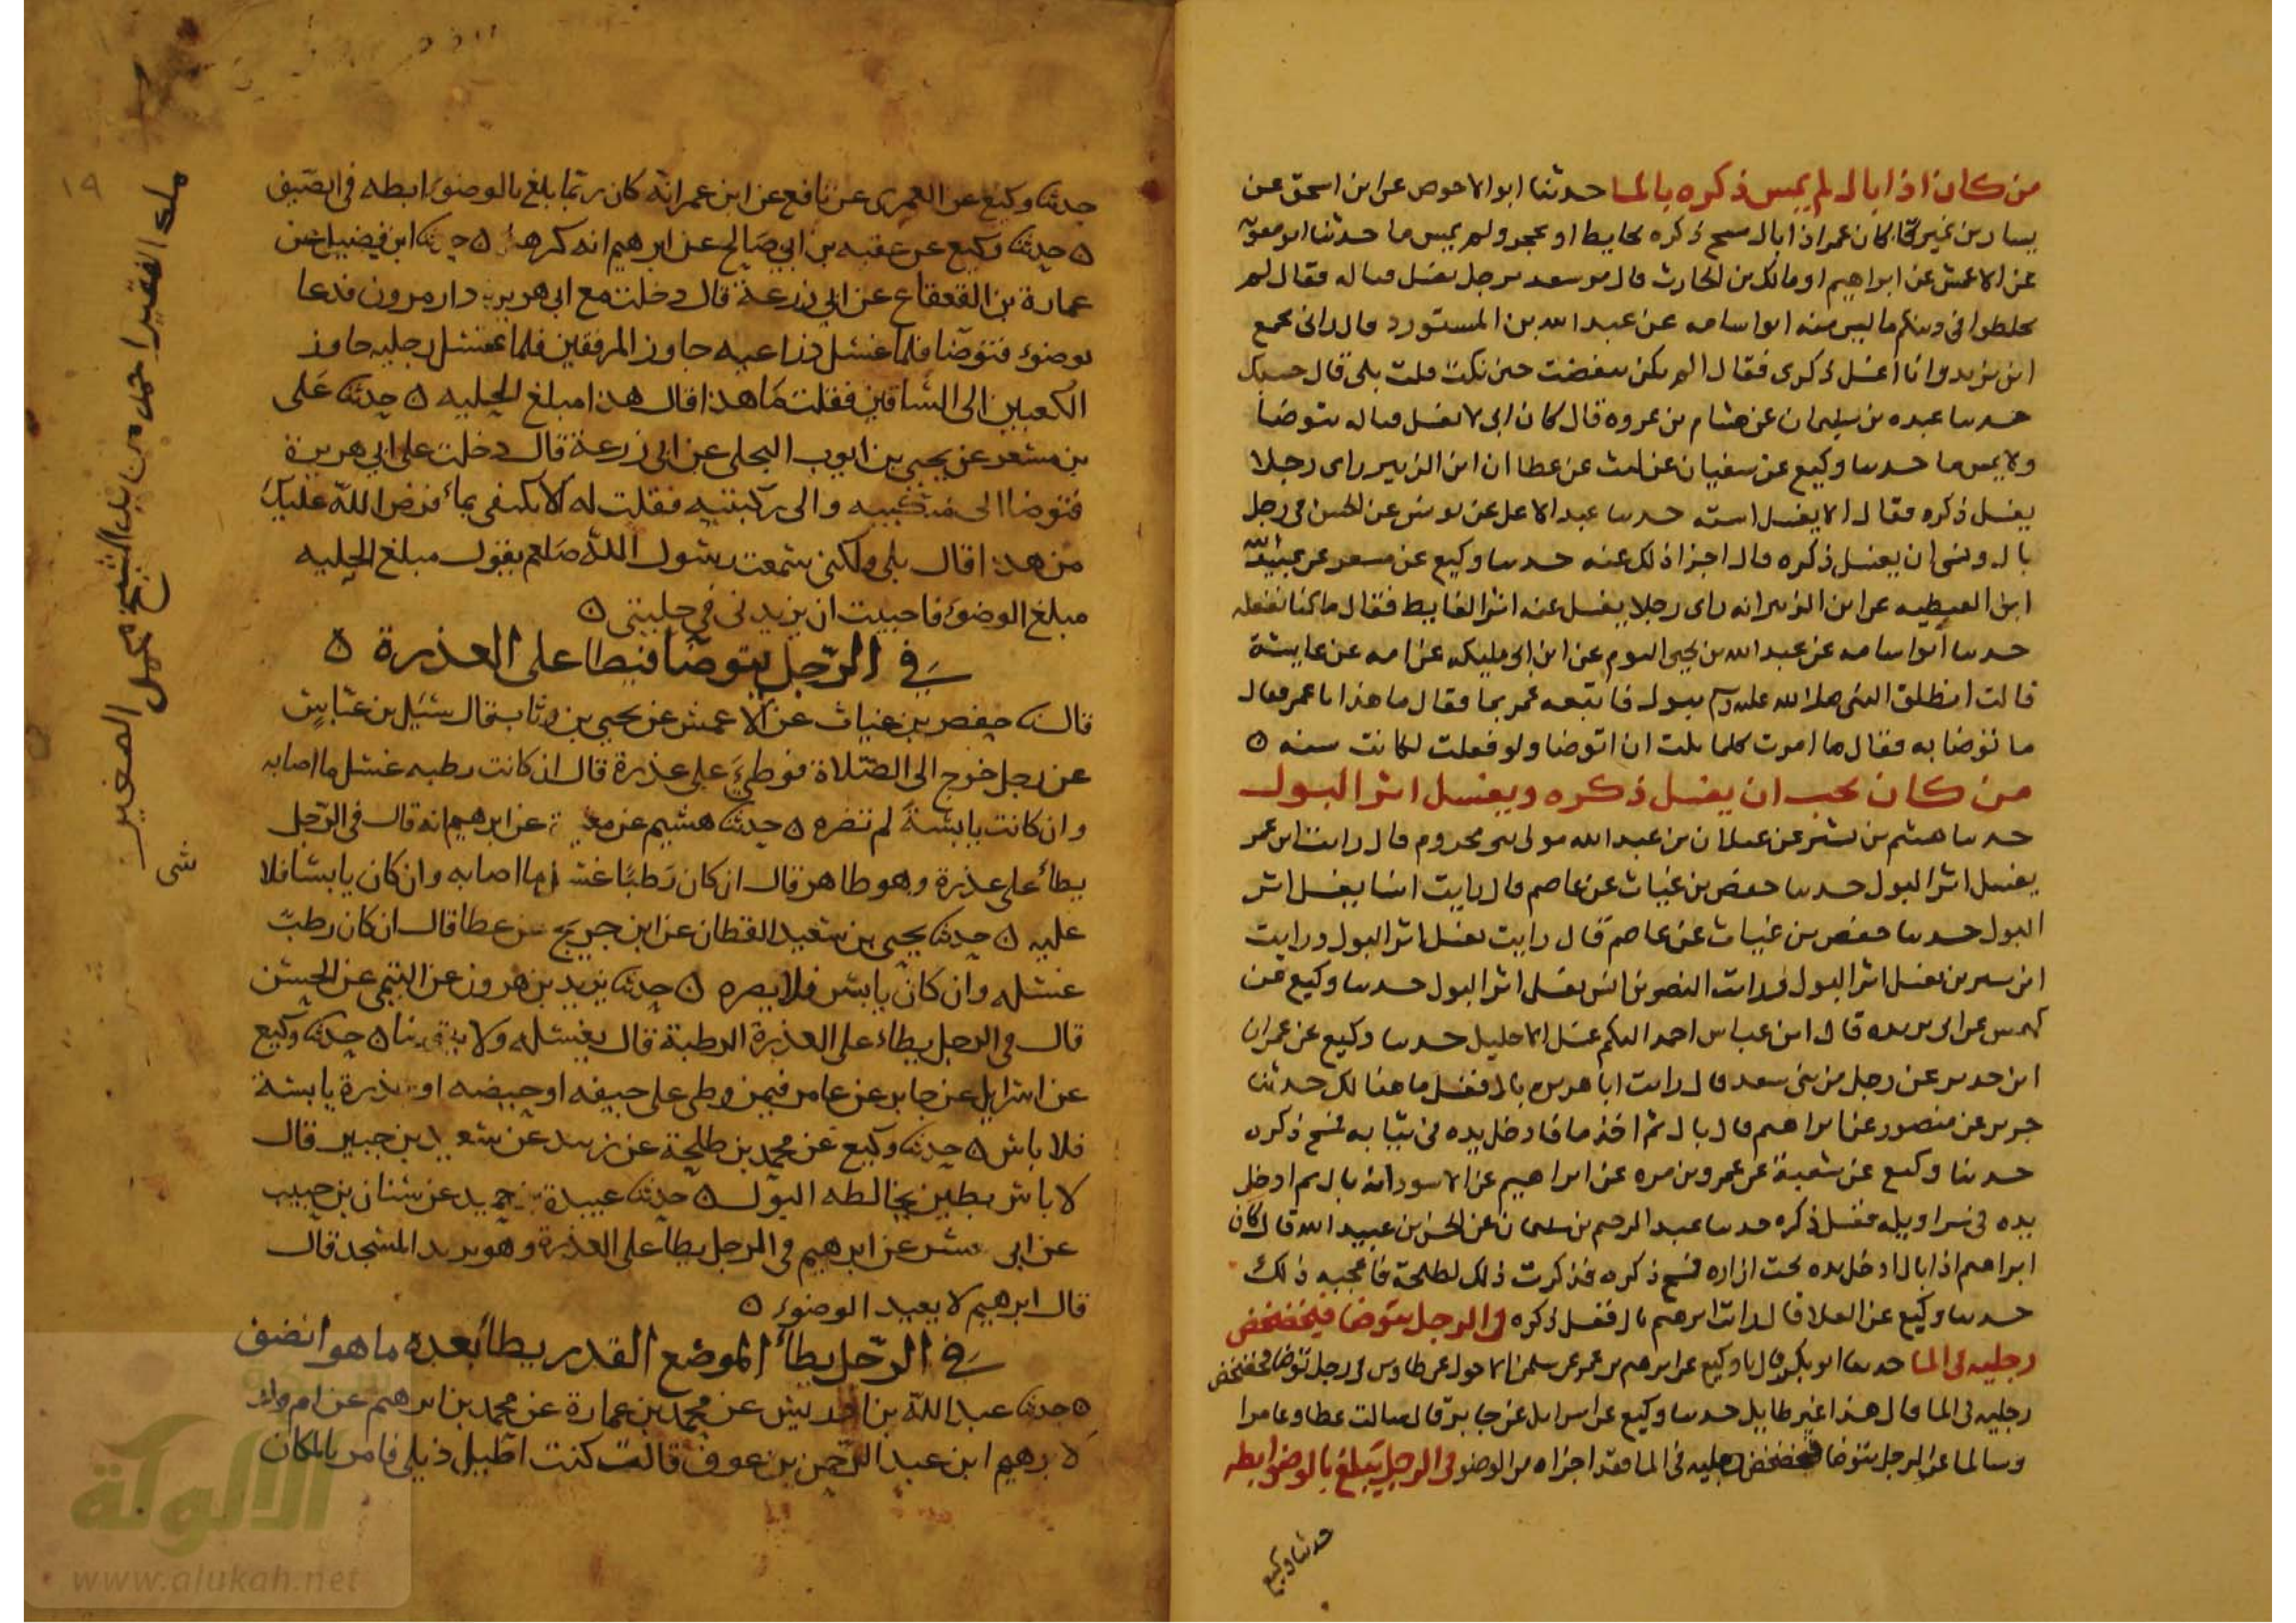 من كان اذا بال لم يمس ذكره بالما حدثنا ابو الاحوص عن ابن اسحق عن
يسار بن نمير قال كان عمر اذا بال مسح ذكره بحايط او بحجر ولم يمس ما حدثنا ابو معوية
عن الاعمش عن ابراهيم او مالك بن الحارث قال مر سعد برجل يغسل مباله فقال لم
تخلطوا في دينكم ما ليس منه ابو اسامه عن عبد الله بن المستورد قال راني مجمع
ابن يزيد وانا اغسل ذكرى فقال الم تكن نفضت حين نكت قلت بلى قال حسبك
حدثنا عبده بن سليمان عن هشام بن عروه قال كان ابى لا يغسل مباله يتوضا
ولا يمس ما حدثنا وكيع عن سفيان عن ليث عن عطا ان ابن الزبير راى رجلا
يغسل ذكره فقال الا يغسل استه حدثنا عبد الاعلى عن يونس عن الحسن في رجل
بال ونسى ان يغسل ذكره قال اجزا ذلك عنه حدثنا وكيع عن مسعر عن عبيد الله
ابن القبطيه عن ابن الزبير انه راى رجلا يغسل عنه اثر الغايط فقال ما كنا نفعله
حدثنا ابو اسامه عن عبد الله بن يحيى التوم عن ابن ابى مليكه عن امه عن عايشة
قالت انطلق النبى صلى الله عليه وسلم يبول فاتبعه عمر بما فقال ما هذا يا عمر فقال
ما توضا به فقال ما امرت كلما بلت ان اتوضا ولو فعلت لكانت سنه ه
من كان يحب ان يغسل ذكره ويغسل اثر البول
حدثنا هشيم بن بشير عن غيلان بن عبد الله مولى بنى مخزوم قال رايت ابن عمر
يغسل اثر البول حدثنا حفص بن غياث عن عاصم قال رايت انسا يغسل اثر
البول حدثنا حفص بن غياث عن عاصم قال رايت يغسل اثر البول ورايت
ابن سيرين يغسل اثر البول ورايت النضر بن انس يغسل اثر البول حدثنا وكيع عن
كهمس عن ابن بريده قال ابن عباس احمد اليكم غسل الاحليل حدثنا وكيع عن عمران
ابن حدير عن رجل من بنى سعد قال رايت ابا هريره بال فغسل ما هنالك حدثنا
جرير عن منصور عن ابراهيم قال بال ثم اخذ ما فادخل يده في ثيابه فمسح ذكره
حدثنا وكيع عن شعبة عن عمرو بن مره عن ابراهيم عن الاسود انه بال ثم ادخل
يده في سراويله فغسل ذكره حدثنا عبد الرحيم بن سليمان عن الحسن بن عبيد الله قال كان
ابراهيم اذا بال ادخل يده تحت ازاره فمسح ذكره فذكرت ذلك لطلحة فاعجبه ذلك
حدثنا وكيع عن العلا قال رايت ابرهيم بال فغسل ذكره في الرجل يتوضا فيخضخض
رجليه في الما حدثنا ابو بكر قال نا وكيع عن ابرهيم بن عمر عن سليمن الاحول عن طاوس في رجل توضا فخضخض
رجليه في الما قال هذا غير طايل حدثنا وكيع عن اسرايل عن جابر قال سالت عطا وعامرا
وسالما عن الرجل يتوضا فيخضخض رجليه في الما فقد اجزاه من الوضو في الرجل يبلغ بالوضو ابطه
حدثنا وكيع
حدثنا وكيع عن العمرى عن نافع عن ابن عمر انه كان ربما بلغ بالوضوء ابطه في الصيف
ه حدثنا وكيع عن عقبه بن ابي صالح عن ابرهيم انه كرهه ه حدثنا ابن فضيل عن
عمارة بن القعقاع عن ابي زرعة قال دخلت مع ابي هريرة دار مرون فدعا
بوضوء فتوضا فلما غسل ذراعيه جاوز المرفقين فلما غسل رجليه جاوز
الكعبين الى الساقين فقلت ما هذا قال هذا مبلغ الحليه ه حدثنا على
بن مسعر عن يحيى بن ايوب البجلى عن ابي زرعة قال دخلت على ابي هريرة
فتوضا الى منكبيه والى ركبتيه فقلت له الا تكتفى بما فرض الله عليك
من هذا قال بلى ولكنى سمعت رسول الله صلعم يقول مبلغ الحليه
مبلغ الوضوء فاحببت ان يزيدنى في حليتى ه
في الرجل يتوضأ فيطا على العذرة ه
قال ثنا حفص بن غياث عن الاعمش عن يحيى بن وثاب قال سئل بن عباس
عن رجل خرج الى الصلاة فوطئ على عذرة قال ان كانت رطبه غسل ما اصابه
وان كانت يابسة لم تضره ه حدثنا هشيم عن مغيرة عن ابرهيم انه قال في الرجل
يطأ على عذرة وهو طاهر قال ان كان رطبا غسل ما اصابه وان كان يابسا فلا
عليه ه حدثنا يحيى بن سعيد القطان عن ابن جريج عن عطا قال ان كان رطب
غسله وان كان يابس فلا يضره ه حدثنا يزيد بن هرون عن التيمى عن الحسن
قال في الرجل يطاء على العذرة الرطبة قال يغسله ولا يتوضا ه حدثنا وكيع
عن اسرايل عن جابر عن عامر فيمن وطى على جيفه او حيضه او عذرة يابسة
فلا باس ه حدثنا وكيع عن محمد بن طلحة عن زبيد عن سعيد بن جبير قال
لا باس بطين يخالطه البول ه حدثنا عبيدة بن حميد عن سنان بن حبيب
عن ابى معشر عن ابرهيم في الرجل يطأ على العذرة وهو يريد المسجد قال
قال ابرهيم لا يعيد الوضوء ه
في الرجل يطأ الموضع القذر يطأ بعده ما هو انضف
ه حدثنا عبد الله بن ادريس عن محمد بن عمارة عن محمد بن ابرهيم عن ام ولد
لابرهيم ابن عبد الرحمن بن عوف قالت كنت اطيل ذيلى فامر بالمكان
ملك الفقير احمد بن الشيخ الصغير
١٩
شبكة
الألوكة
www.alukah.net